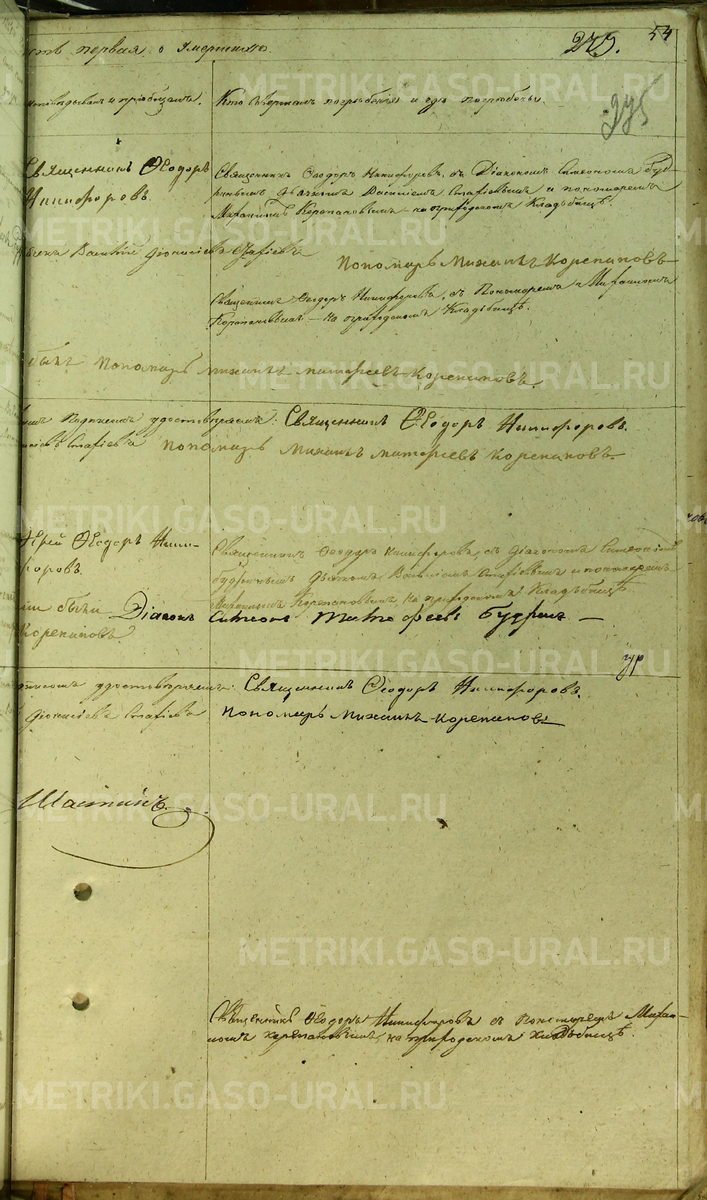 сть первая о Умершихъ.
275.
54
275
исповѣдывалъ и пріобщалъ.
Кто совершалъ погребеніе и гдѣ погребены.
Священникъ Ѳеодоръ
Никифоровъ.
Священникъ Ѳеодоръ Никифоровъ, съ Діакономъ Симеономъ Буд-
ринымъ дьячкомъ Василіемъ Стафіевымъ и пономаремъ
Михаиломъ Корепановымъ на приходскомъ Кладбищѣ.
Василій Діонисіевъ Стафіевъ
Пономарь Михаилъ Корепановъ
Священникъ Ѳеодоръ Никифоровъ, съ Пономаремъ Михаиломъ
Корепановымъ на приходскомъ Кладбищѣ.
были Пономарь Михаилъ Матѳеевъ Корепановъ.
Подписомъ удостовѣряемъ: Священникъ Ѳеодоръ Никифоровъ.
Стафіевъ Пономарь Михаилъ Матѳеевъ Корепановъ
Іерей Ѳеодоръ Ники-
форовъ
Священникъ Ѳеодоръ Никифоровъ, съ Діакономъ Симеономъ
Будринымъ Дьячкомъ Василіемъ Стафіевымъ и пономаремъ
Михаиломъ Корепановымъ на приходскомъ Кладбищѣ
были Діаконъ Симеонъ Матѳеевъ Будринъ
Корепановъ
удостовѣряемъ: Священникъ Ѳеодоръ Никифоровъ.
Діонисіевъ Стафіевъ Пономарь Михаилъ Корепановъ
Священникъ Ѳеодоръ Никифоровъ съ Пономаремъ Михаи-
ломъ Корепановымъ, на приходскомъ Кладбищѣ.
METRIKI.GASO-URAL.RU